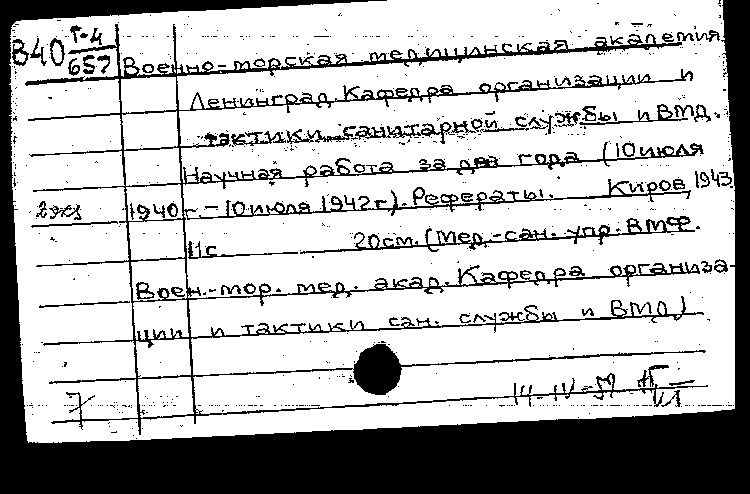 В40 Г-4/657
Военно-морская медицинская академия
Ленинград. Кафедра организации и
тактики санитарной службы и ВМД.
Научная работа за два года (10 июля
2 экз 1940 г. – 10 июля 1942 г.). Рефераты. Киров, 1943.
11 с. 20 см. (Мед.-сан. упр. ВМФ.
Воен.-мор. мед. акад. Кафедра организа-
ции и тактики сан. службы и ВМД)
14-IV-59